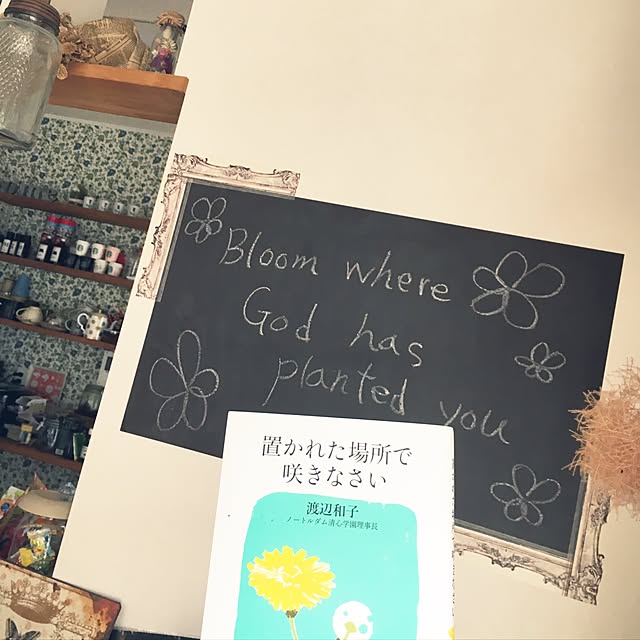 Bloom where
God has
planted you
置かれた場所で
咲きなさい
渡辺和子
ノートルダム清心学園理事長